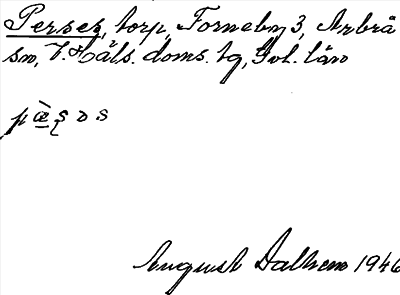 Persez, torp, Forneby 3, Arbrå
sn, V. Häls. doms. tg, Gvl. län
pæ̀ʂos
August Dalhem 1946